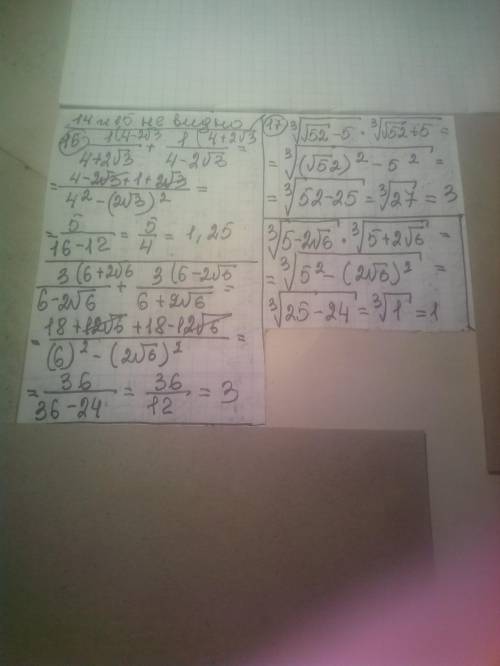 14 и 15 не видно
16) 1(4-2√3 / 4+2√3 + 1(4+2√3 / 4-2√3 =
= 4-2√3+1+2√3 / 4²-(2√3)² =
= 5 / 16-12 = 5/4 = 1,25
3(6+2√6 / 6-2√6 + 3(6-2√6 / 6+2√6 =
= 18+12√6+18-12√6 / (6)²-(2√6)² =
= 36 / 36-24 = 36/12 = 3
17) ∛(√52-5) · ∛(√52+5) =
= ∛((√52)²-5²) =
= ∛(52-25) = ∛27 = 3
∛(5-2√6) · ∛(5+2√6) =
= ∛(5²-(2√6)²) =
∛(25-24) = ∛1 = 1